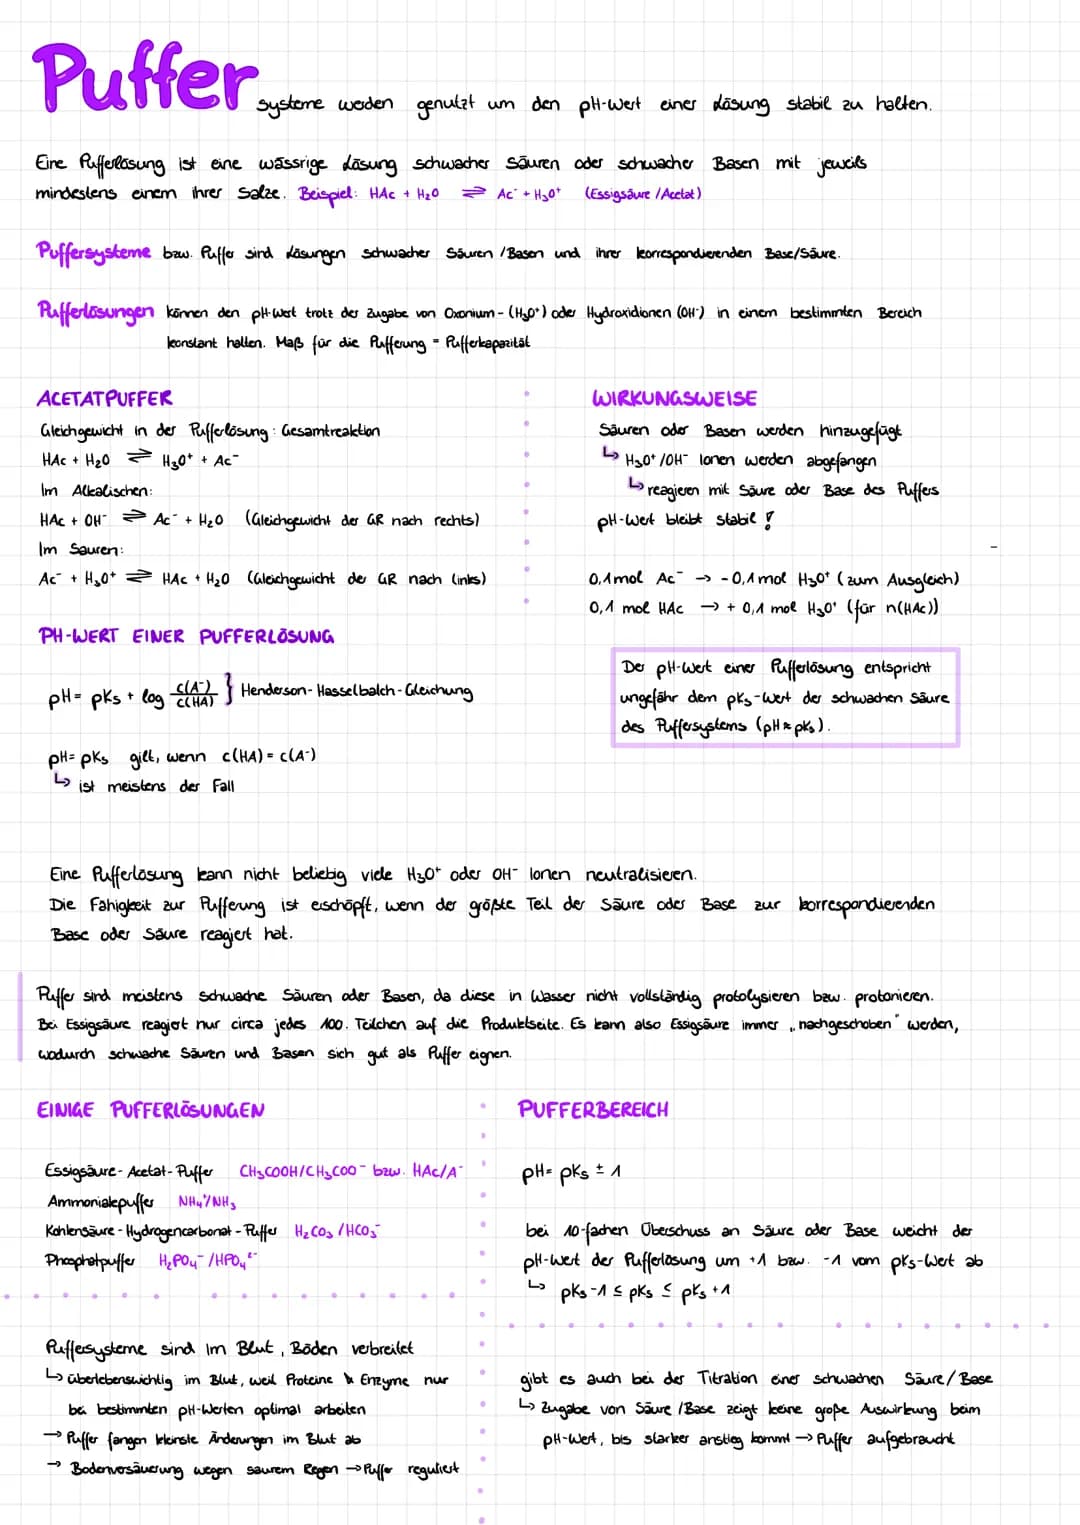 Puffer
systeme werden genutzt um den pH-Wert einer Lösung stabil zu halten.
Eine Pufferlösung ist eine wässrige Lösung schwacher Säuren oder schwacher Basen mit jeweils
mindestens einem ihrer Salze. Beispiel: HAc + H₂O ⇌ Ac⁻ + H₃O⁺ (Essigsäure /Acetat)
Puffersysteme bzw. Puffer sind Lösungen schwacher Säuren /Basen und ihrer korrespondierenden Base/Säure.
Pufferlösungen können den pH-Wert trotz der Zugabe von Oxonium- (H₃O⁺) oder Hydroxidionen (OH⁻) in einem bestimmten Bereich
konstant halten. Maß für die Pufferung = Pufferkapazität
ACETATPUFFER
Gleichgewicht in der Pufferlösung: Gesamtreaktion
HAc + H₂O ⇌ H₃O⁺ + Ac⁻
Im Alkalischen:
HAc + OH⁻ ⇌ Ac⁻ + H₂O (Gleichgewicht der GR nach rechts)
Im Sauren:
Ac⁻ + H₃O⁺ ⇌ HAc + H₂O (Gleichgewicht der GR nach links)
WIRKUNGSWEISE
Säuren oder Basen werden hinzugefügt
↳ H₃O⁺/OH⁻ Ionen werden abgefangen
↳ reagieren mit Säure oder Base des Puffers
pH-Wert bleibt stabil !
0,1 mol Ac⁻ → - 0,1 mol H₃O⁺ (zum Ausgleich)
0,1 mol HAc → + 0,1 mol H₃O⁺ (für n(HAc))
PH-WERT EINER PUFFERLÖSUNG
pH = pKs + log c(A⁻)/c(HA) } Henderson-Hasselbalch-Gleichung
pH = pKs gilt, wenn c(HA) = c(A⁻)
↳ ist meistens der Fall
Der pH-Wert einer Pufferlösung entspricht
ungefähr dem pKs-Wert der schwachen Säure
des Puffersystems (pH ≈ pKs).
Eine Pufferlösung kann nicht beliebig viele H₃O⁺ oder OH⁻ Ionen neutralisieren.
Die Fähigkeit zur Pufferung ist erschöpft, wenn der größte Teil der Säure oder Base zur korrespondierenden
Base oder Säure reagiert hat.
Puffer sind meistens schwache Säuren oder Basen, da diese in Wasser nicht vollständig protolysieren bzw. protonieren.
Bei Essigsäure reagiert nur circa jedes 100. Teilchen auf die Produktseite. Es kann also Essigsäure immer „nachgeschoben" werden,
wodurch schwache Säuren und Basen sich gut als Puffer eignen.
EINIGE PUFFERLÖSUNGEN
Essigsäure-Acetat-Puffer CH₃COOH/CH₃COO⁻ bzw. HAc/A⁻
Ammoniakpuffer NH₄⁺/NH₃
Kohlensäure-Hydrogencarbonat-Puffer H₂CO₃/HCO₃⁻
Phosphatpuffer H₂PO₄⁻/HPO₄²⁻
PUFFERBEREICH
pH = pKs ± 1
bei 10-fachen Überschuss an Säure oder Base weicht der
pH-Wert der Pufferlösung um +1 bzw. -1 vom pKs-Wert ab
↳ pKs -1 ≤ pKs ≤ pKs +1
Puffersysteme sind im Blut, Böden verbreitet
↳ überlebenswichtig im Blut, weil Proteine & Enzyme nur
bei bestimmten pH-Werten optimal arbeiten
→ Puffer fangen kleinste Änderungen im Blut ab
→ Bodenversäuerung wegen saurem Regen → Puffer reguliert
gibt es auch bei der Titration einer schwachen Säure/Base
↳ Zugabe von Säure /Base zeigt keine große Auswirkung beim
pH-Wert, bis starker anstieg kommt → Puffer aufgebraucht